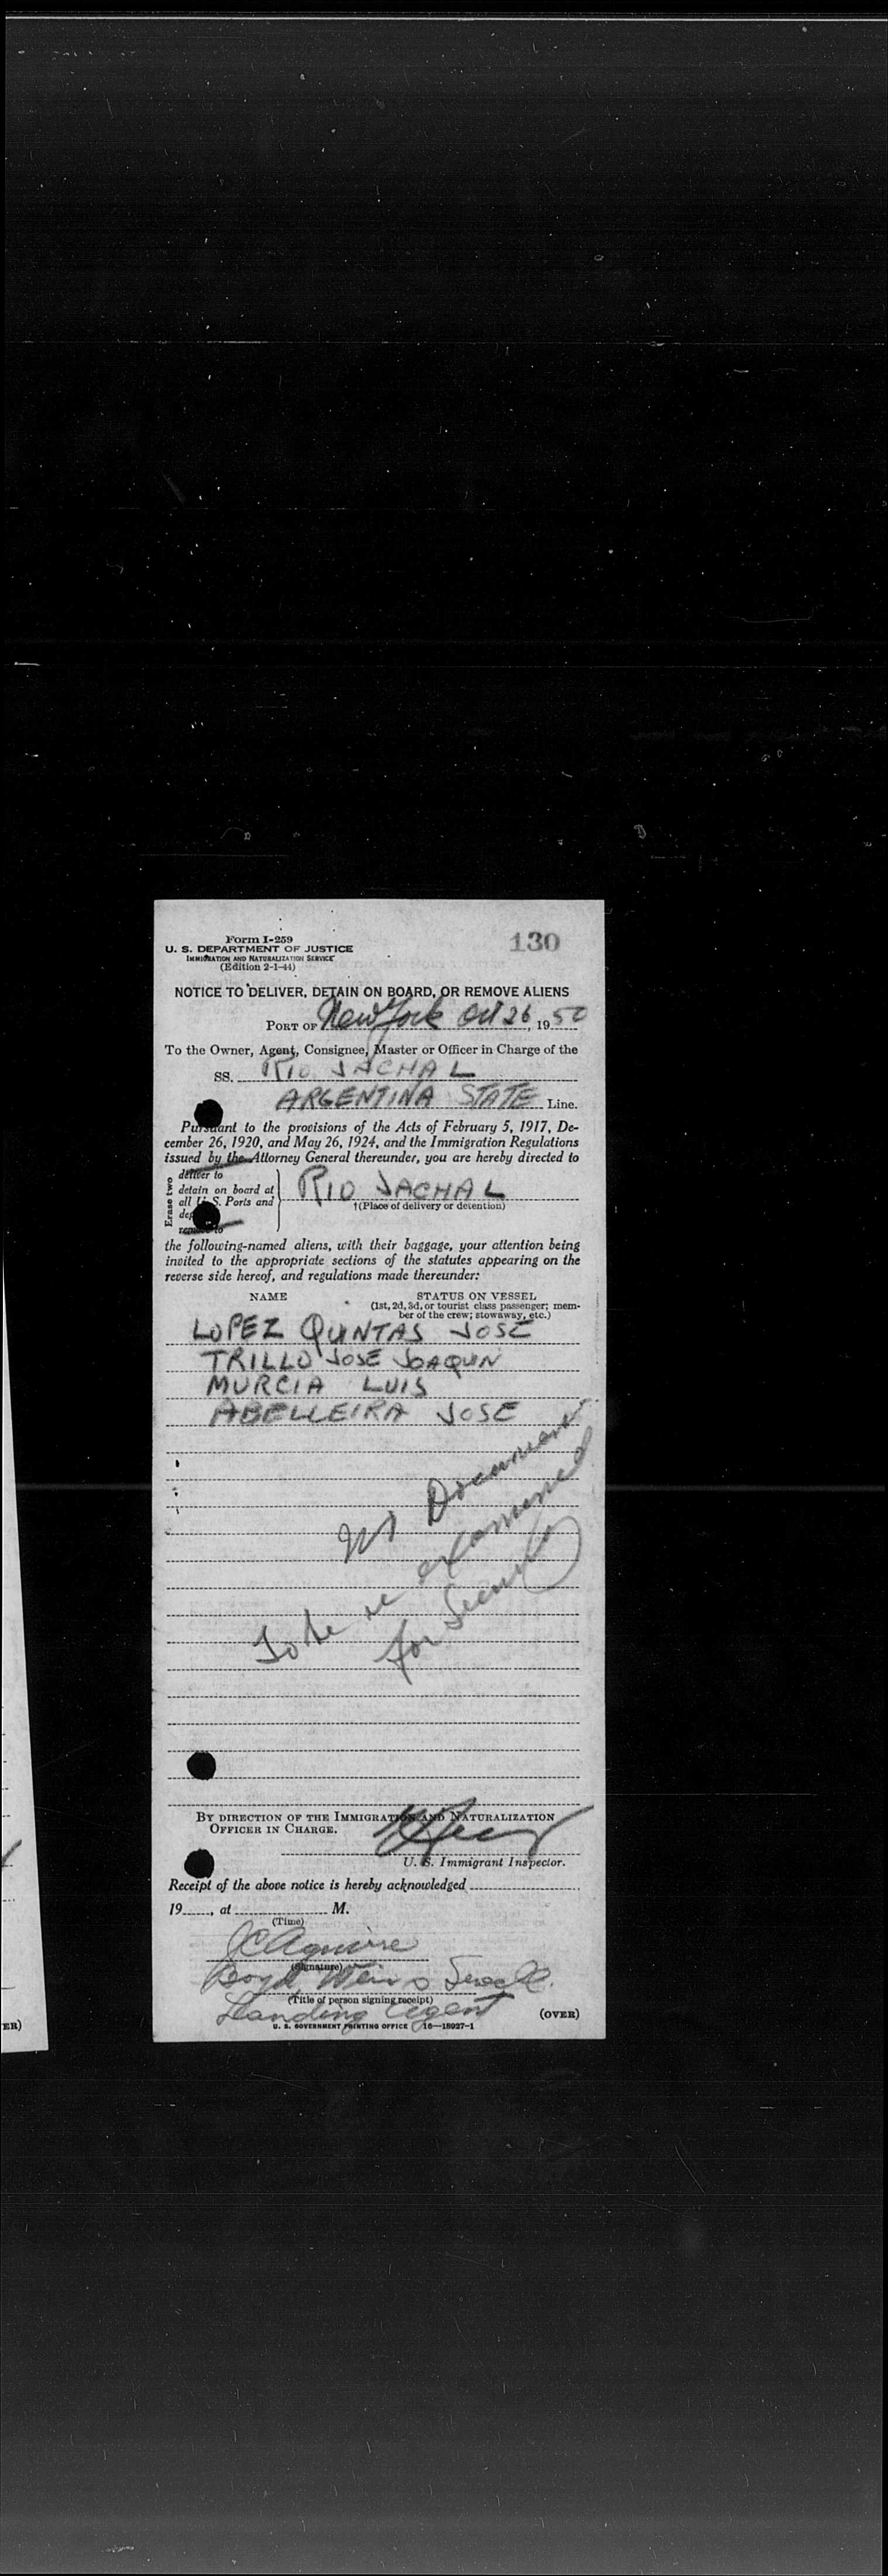 Form I-259
130
U. S. DEPARTMENT OF JUSTICE
IMMIGRATION AND NATURALIZATION SERVICE
(Edition 2-1-44)
NOTICE TO DELIVER, DETAIN ON BOARD, OR REMOVE ALIENS
PORT OF New York Oct 26, 1950
To the Owner, Agent, Consignee, Master or Officer in Charge of the
SS. RIO JACHAL
ARGENTINA STATE Line.
Pursuant to the provisions of the Acts of February 5, 1917, De-
cember 26, 1920, and May 26, 1924, and the Immigration Regulations
issued by the Attorney General thereunder, you are hereby directed to
Erase two
deliver to
detain on board at
all U. S. Ports and
remove to
RIO JACHAL
†(Place of delivery or detention)
the following-named aliens, with their baggage, your attention being
invited to the appropriate sections of the statutes appearing on the
reverse side hereof, and regulations made thereunder:
NAME STATUS ON VESSEL
(1st, 2d, 3d, or tourist class passenger; mem-
ber of the crew; stowaway, etc.)
LOPEZ QUINTAS JOSE
TRILLO JOSE JOAQUIN
MURCIA LUIS
ABELLEIRA JOSE
No Document
To be re examined
for Security
BY DIRECTION OF THE IMMIGRATION AND NATURALIZATION
OFFICER IN CHARGE.
U. S. Immigrant Inspector.
Receipt of the above notice is hereby acknowledged
19, at M.
(Time)
JC Aguirre
(Signature)
Boyd Weir & Sewell
(Title of person signing receipt)
Landing Agent
(OVER)
U. S. GOVERNMENT PRINTING OFFICE 16—18927-1
ER)